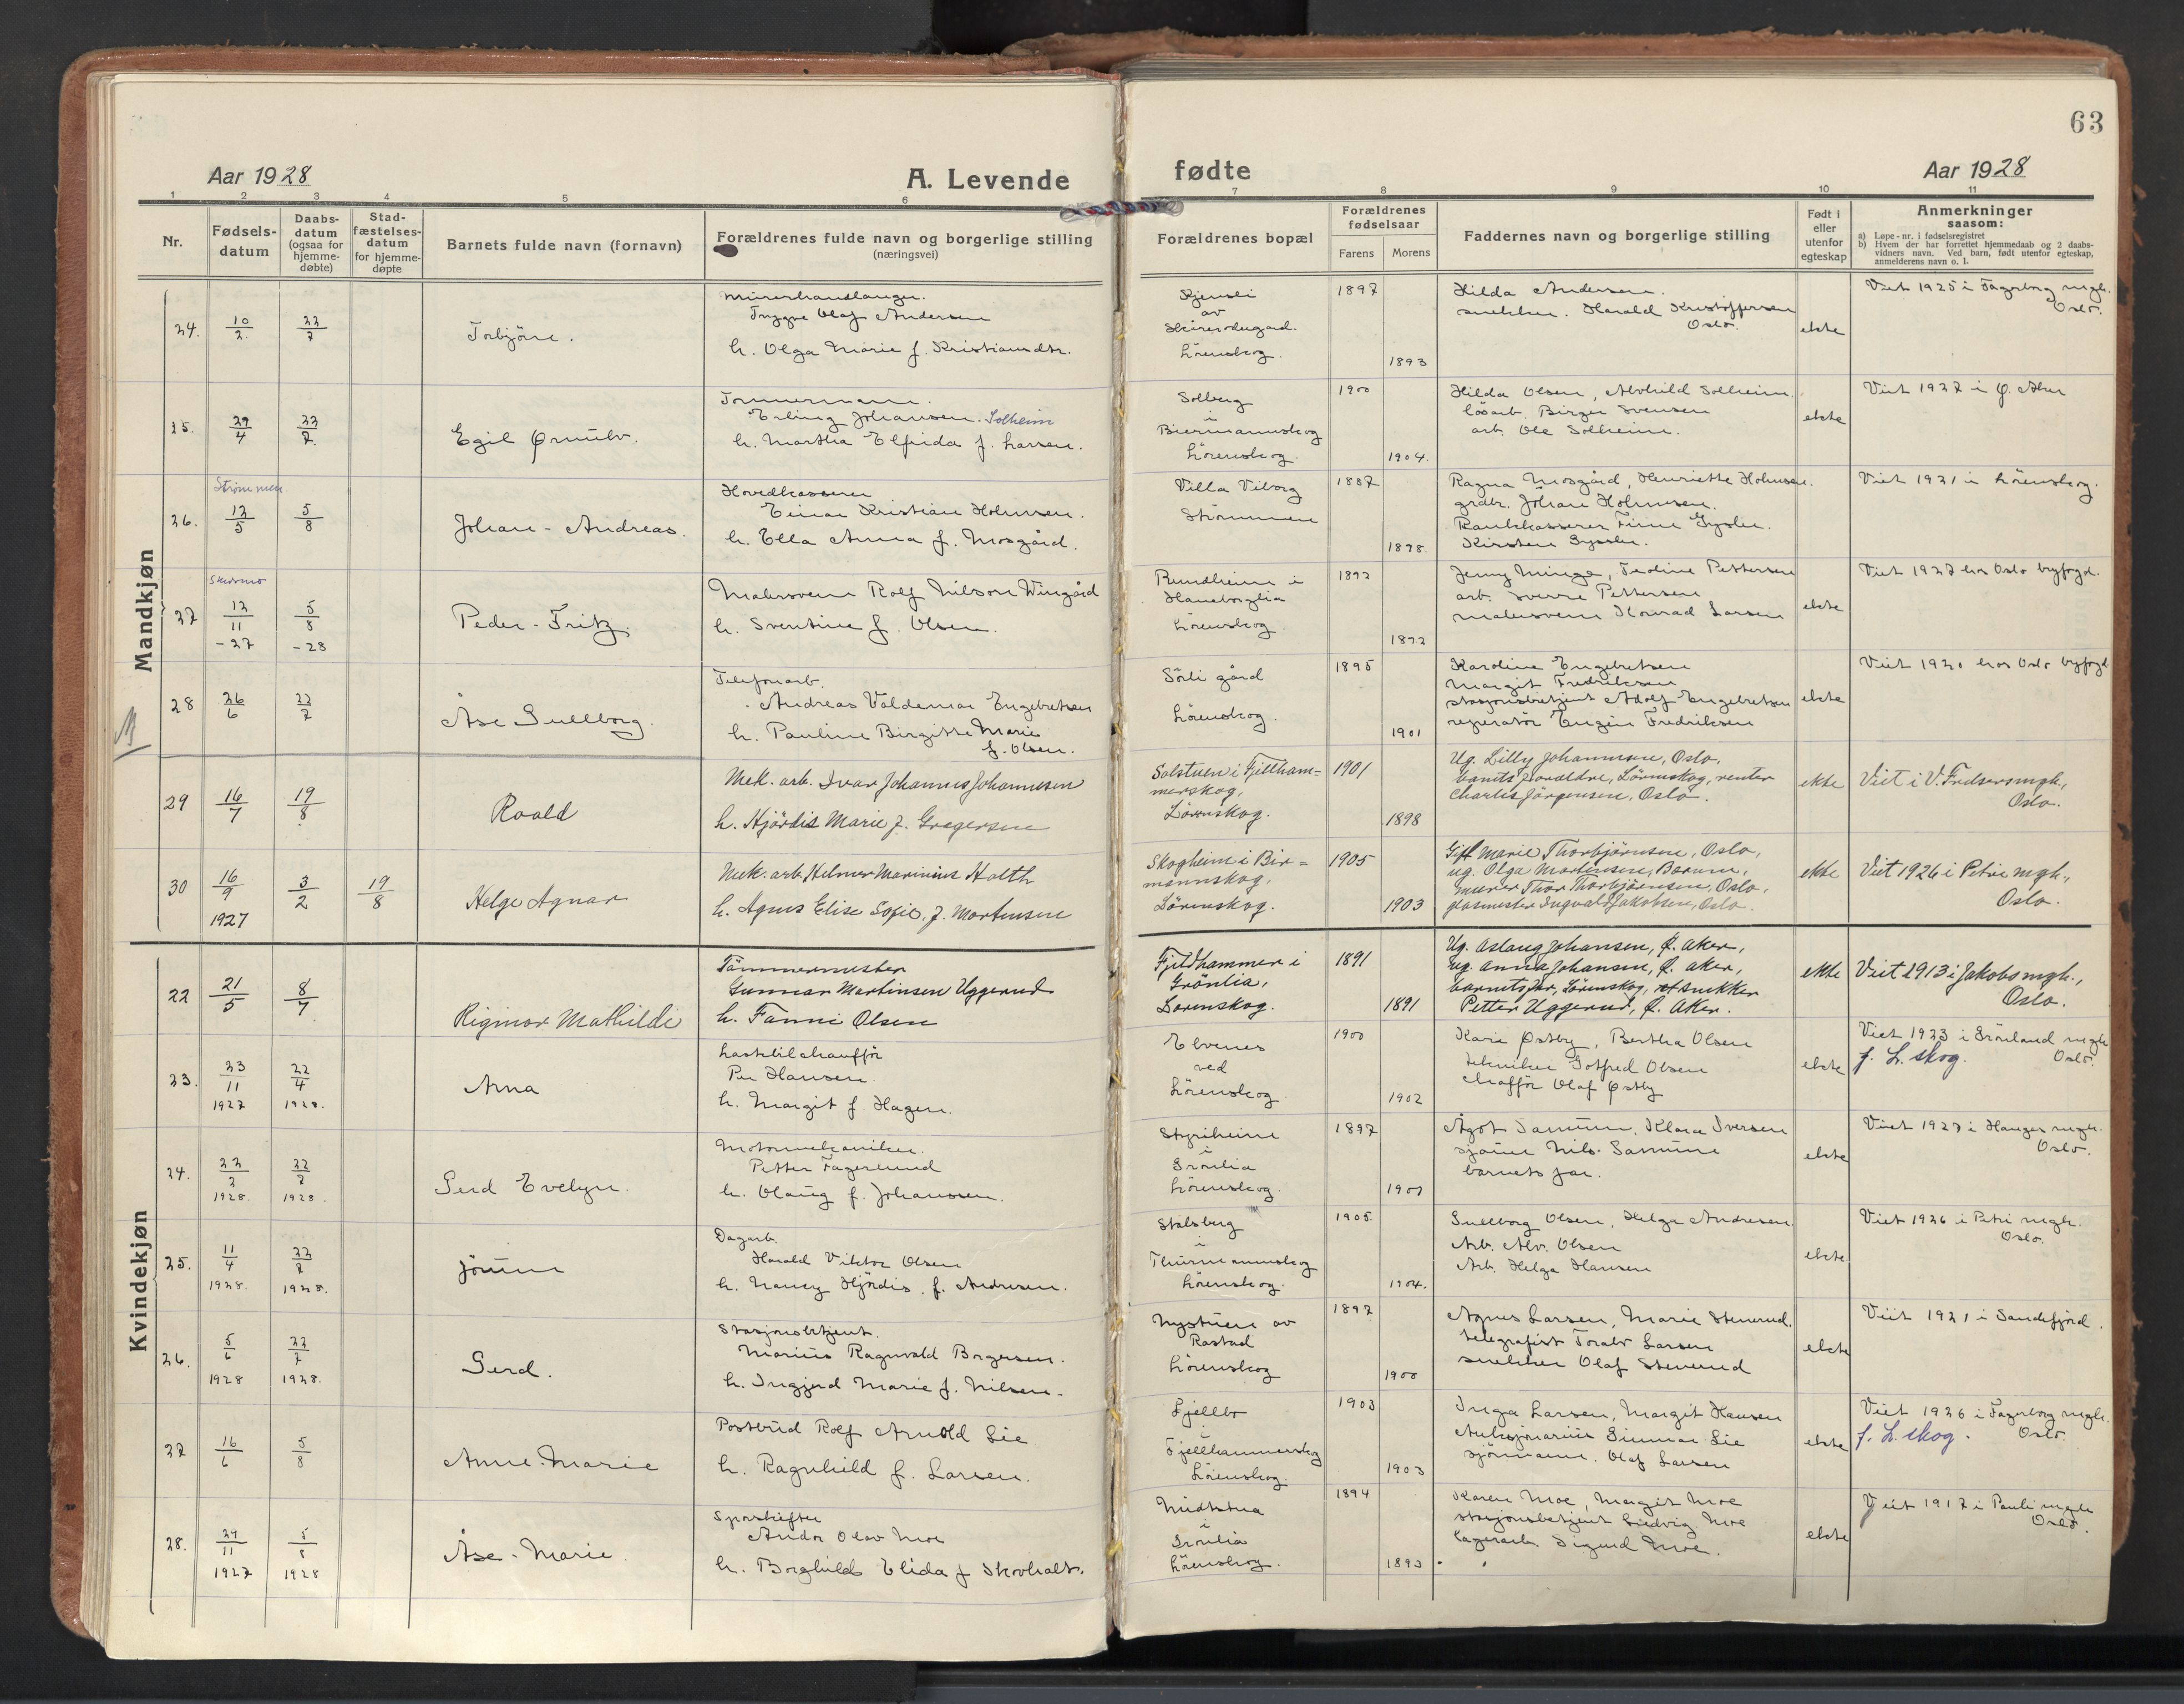 63
Aar 1928
A. Levende
fødte
Aar 1928
1 2 3 4 5 6 7 8 9 10 11
Nr.
Fødsels-
datum
Daabs-
datum
(ogsaa for
hjemme-
døbte)
Stad-
fæstelses-
datum
for hjemme-
døpte
Barnets fulde navn (fornavn)
Forældrenes fulde navn og borgerlige stilling
(næringsvei)
Forældrenes bopæl
Forældrenes
fødselsaar
Farens
Morens
Faddernes navn og borgerlige stilling
Født i
eller
utenfor
egteskap
Anmerkninger
saasom:
a) Løpe-nr. i fødselsregistret
b) Hvem der har forrettet hjemmedaab og 2 daabs-
vidners navn. Ved barn, født utenfor egteskap,
anmelderens navn o. l.
Mandkjøn
24. 10/2. 22/7
Torbjörn.
Murerhandlanger.
Trygve Olaf Andersen
h. Olga Marie f. Kristiansdtr.
Lörenskog.
1897
1893
Hilda Andersen.
snekker. Harald Kristoffersen
Oslo.
ekte
Viet 1925 i Fagerborg mgh.
Oslo.
25. 29/4 22/7.
Egil Ørnulv.
Tømmermann.
Erling Johansen. Solheim
h. Martha Elfrida f. Larsen.
Solberg
i
Biermannskog
Lörenskog.
1900
1904.
Hilda Olsen, Alvhild Solheim.
lösarb. Birger Svensen
arb. Ole Solheim.
ekte
Viet 1927 i Ø. Aker
Strömmen
26. 12/5 5/8
Johan - Andreas.
Hovedkasserer
Einar Kristian Holmsen.
h. Ella Anna f. Mosgård.
Villa Viborg
Strömmen
1887
1898.
Ragna Mosgård, Henriette Holmsen.
grdbr. Johan Holmsen.
Bankkasserer Finn Sysler.
Kirsten Sysler.
Viet 1921 i Lörenskog.
Skedsmo
27 12/11 -27 5/8 -28
Peder - Fritz.
Malersvenn Rolf Nilson Wingård
h. Sventine f. Olsen.
Rundheim i
Haneborglia
Lörenskog.
1892
1892
Jenny Minge, Teoline Pettersen
arb. Sverre Pettersen
malersvenn Konrad Larsen
ekte
Viet 1927 hos Oslo byfogd.
28 26/6 22/7
Åse Gullborg.
Telefonarb.
Andreas Valdemar Engebretsen
h. Pauline Birgitte Marie
f. Olsen.
Sörli gård
Lörenskog.
1895
1901
Karoline Engebretsen
Margit Fredriksen
stasjonsbetjent Adolf Engebretsen
reparatör Eugen Fredriksen
ekte
Viet 1920 hos Oslo byfogd
29 16/7 19/8
Roald
Mek. arb. Ivar Johannes Johannesen
h. Hjördis Marie f. Gregersen
Solstuen i Fjellham=
merskog,
Lörenskog.
1901
1898
Ug. Lilly Johannesen, Oslo,
barnets foreldre, Lörenskog, rentier
Charles Jörgensen, Oslo.
ekte
Viet i V. Frelsersmgh.,
Oslo.
30 16/9 1927 3/2 19/8
Helge Agnar
Mek. arb. Helmer Marinius Holth
h. Agnes Elise Sofie, f. Mortensen
Skogheim i Bir=
mannskog,
Lörenskog.
1905
1903
Gift Marie Thorbjörnsen, Oslo,
ug. Olga Mortensen, Bærum,
murer Thor Thorbjörnsen, Oslo,
glasmester Ingvald Jakobsen, Oslo.
ekte
Viet 1926 i Petri mgh.,
Oslo.
Kvindekjøn
22 21/5 8/7
Rigmor Mathilde
Tömmermester
Gunnar Martinsen Uggerud
h. Fanni Olsen
Fjeldhammer i
Grönlia,
Lörenskog.
1891
1891
Ug. Aslaug Johansen, Ø. Aker,
ug. Anna Johansen, Ø. Aker,
barnets far, Lörenskog, snekker
Petter Uggerud, Ø. Aker.
ekte
Viet 1913 i Jakobs mgh.,
Oslo.
23. 23/11 1927 22/4 1928.
Arna
Lastebilchaufför
Per Hansen.
h. Margit f. Hagen.
Elvenes
ved
Lörenskog.
1900
1902
Kari Østby, Bertha Olsen
tekniker Gotfred Olsen
chafför Olaf Østby
ekte
Viet 1923 i Grönland mgh.
f. L. skog. Oslo.
24. 22/2 1928. 22/7 1928.
Gerd Evelyn.
Motormekaniker.
Petter Fagerlund
h. Olaug f. Johansen.
Styriheim
i
Grönlia
Lörenskog.
1897
1901
Ågot Samun, Klara Iversen
sjåför Nils. Samun
barnets far.
ekte
Viet 1927 i Hauges mgh.
Oslo.
25. 11/4 1928. 22/7 1928.
Jörunn
Dagarb.
Harald Viktor Olsen
h. Nancy Hjördis. f. Andresen.
Stalsberg
i
Thurmannskog
Lörenskog.
1905.
1904.
Gullborg Olsen, Helga Andresen.
Arb. Alv. Olsen
Arb. Helge Hansen
ekte
Viet 1926 i Petri mgh.
Oslo.
26. 5/6 1928 22/7 1928.
Gerd.
Stasjonsbetjent.
Marius Ragnvald Borgersen.
h. Ingjerd Marie f. Nilsen.
Nystuen av
Rastad
Lörenskog
1897
1900
Agnes Larsen, Marie Stenerud.
telegrafist Toralv Larsen
snekker Olaf Stenerud
ekte
Viet 1921 i Sandefjord.
27 16/6 5/8
Anne-Marie
Postbud Rolf Arnold Lie
h. Ragnhild f. Larsen.
Fjellbo
Fjellhammerskog
Lörenskog.
1903
1903
Inga Larsen, Margit Hansen
Gunnar Lie
sjömann. Olaf Larsen
ekte
Viet 1926 i Fagerborg mgh.
f. L. skog. Oslo.
28. 24/11 1927 5/8 1928
Åse - Marie.
Sporskifter
Andor Olav Moe
h. Borghild Elida f Skovholt.
Midtstua
i
Grönlia
Lörenskog.
1894
1893
Karen Moe, Margit Moe
stasjonsbetjent Ludvig Moe
lagerarb. Sigurd Moe.
ekte
Viet 1917 i Pauli mgh
Oslo.